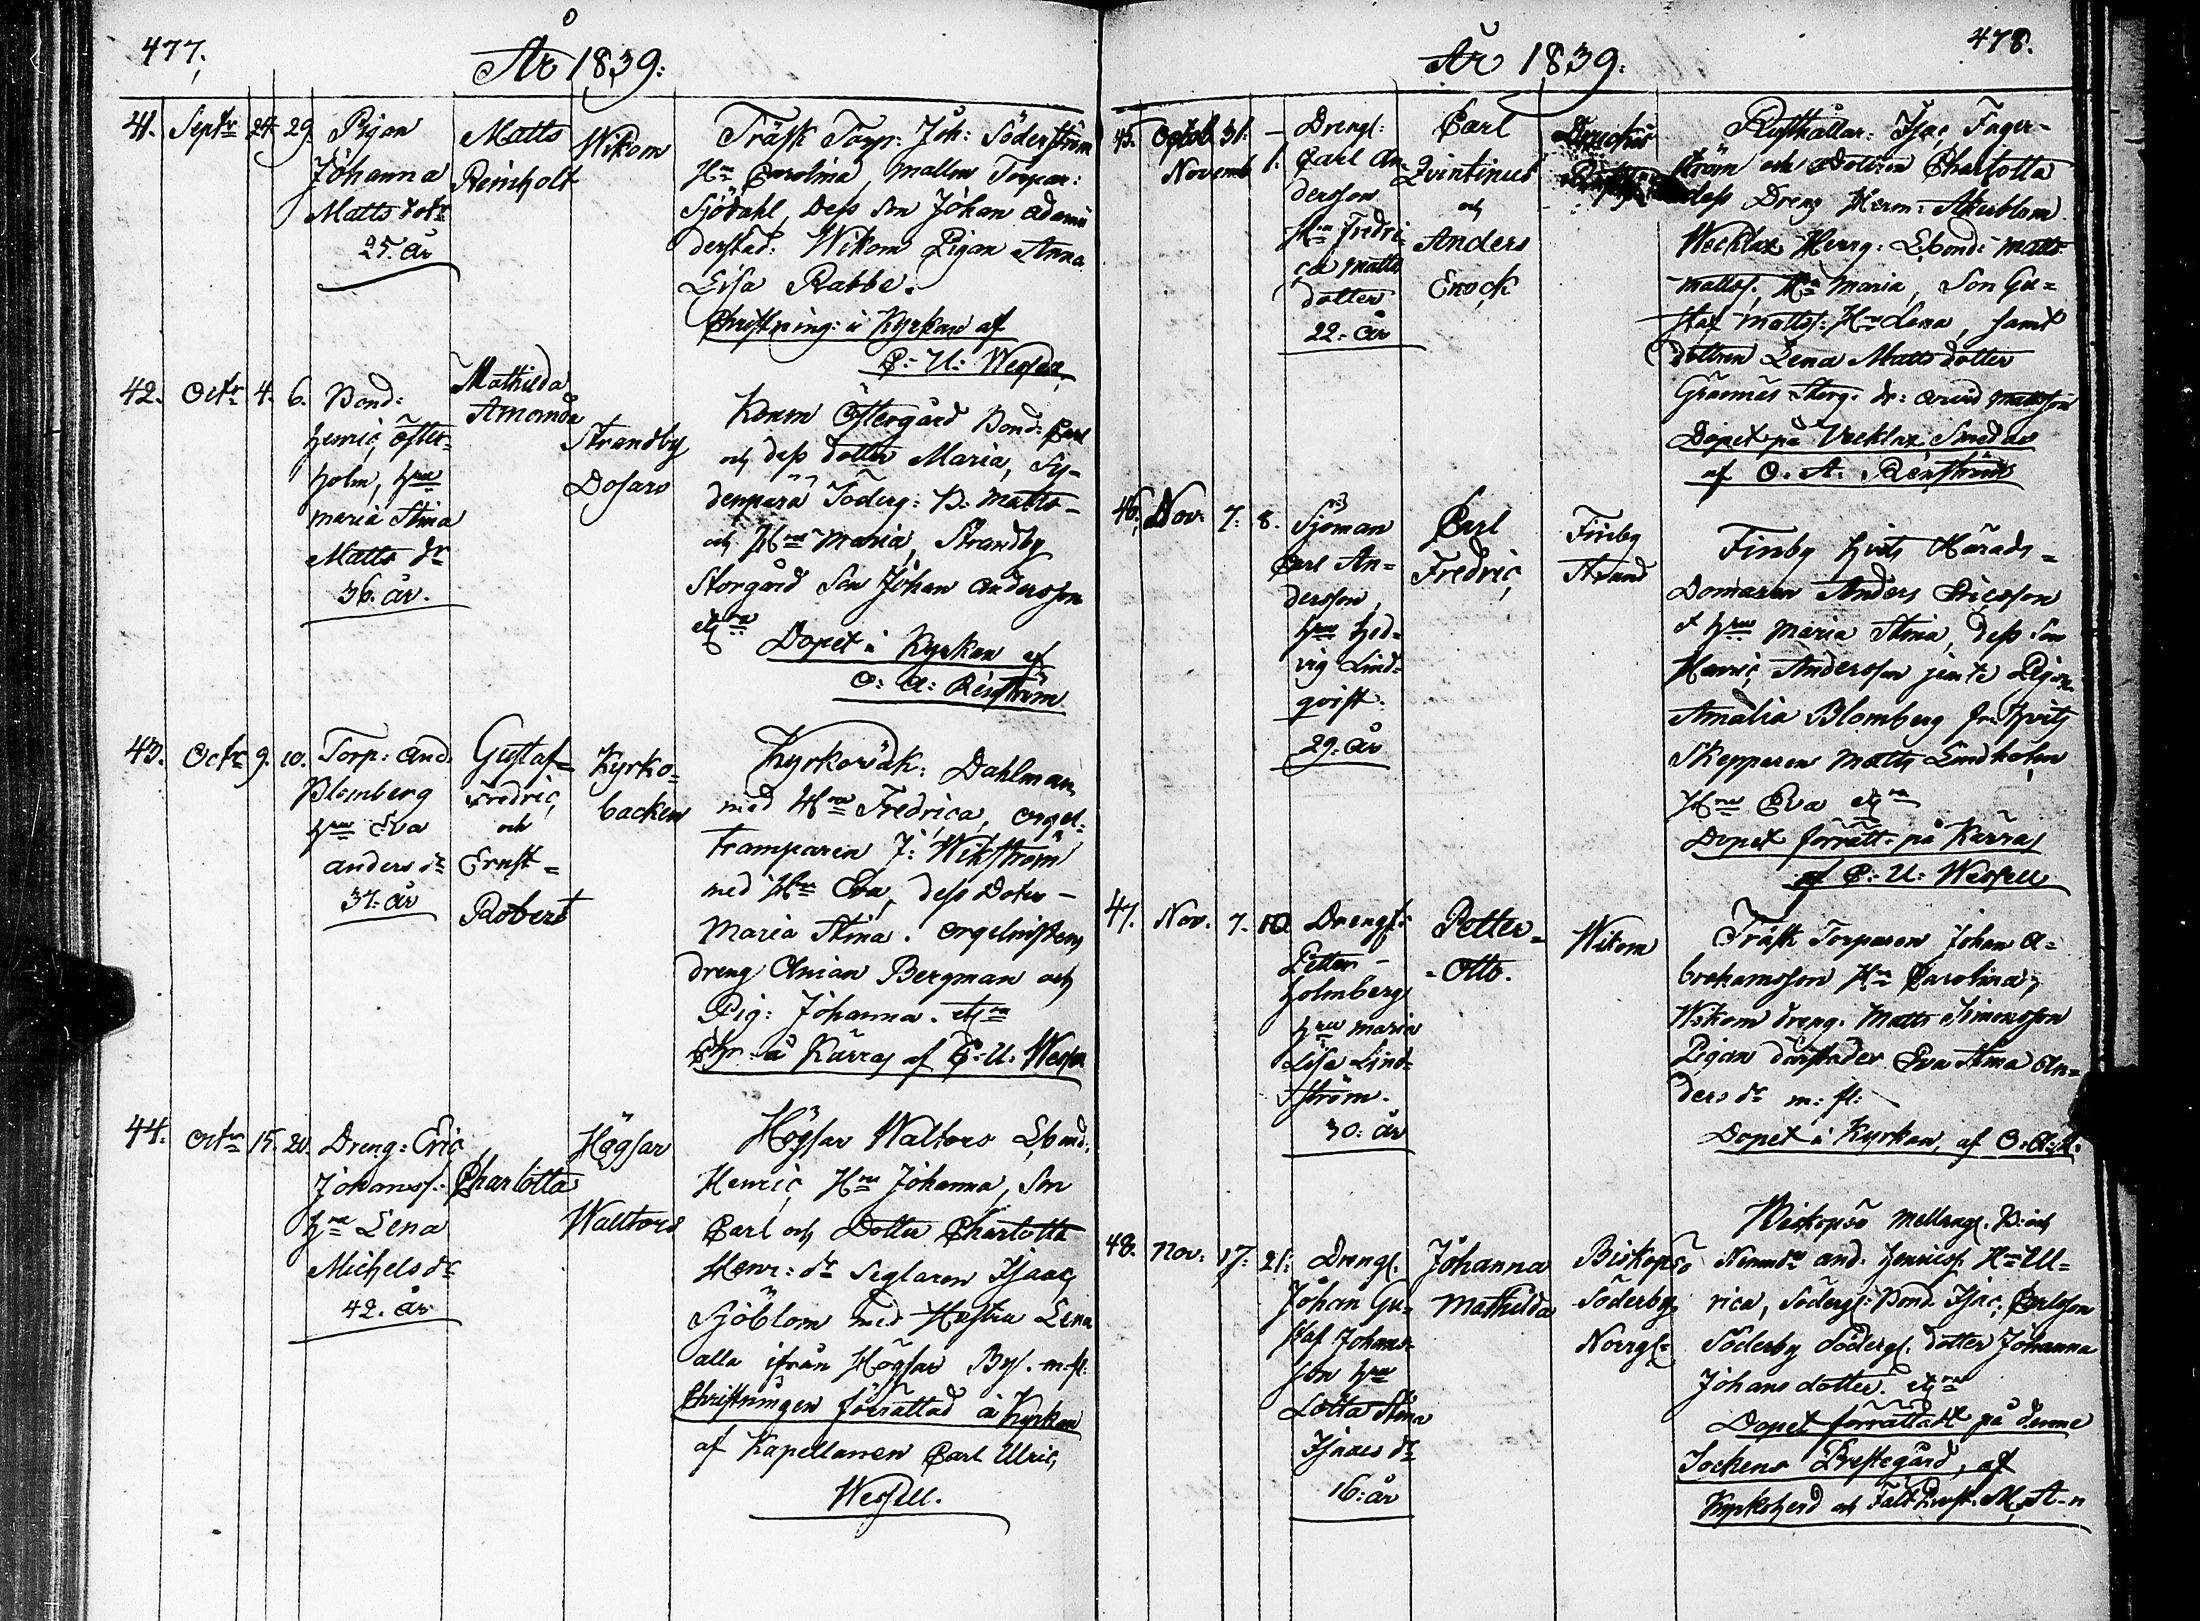 477.
År 1839.
41. Septr 24. 29. Pigan
Johanna
Matts dotr
25. år
Matts
Reinholt
Wikom
Träsk Torp: Joh: Söderström
Hru Carolina, Torpar:
Sjödahl, Dess Son Johan
Wikom Pigan Anna
Lisa Rabbe.
Christning: i Kyrkan af
C: U: Wessell
42. Octr 4. 6. Bond:
Henric Öster-
holm, hru
Maria Stina
Matts dr
36. år.
Mathilda
Amanda
Strandby
Dosars
Östergård Bond: Carl
och dess dotter Maria, Sy-
Söderg: B. Matts
och Hru Maria, Strandby
Storgård Son Johan Andersson
Dopet i Kyrkan af
O: A: Renström
43. Octr 9. 10. Torp: And.
Blomberg
hru Eva
Anders dr
37. år
Gustaf
Fredric
och
Ernst
Robert
Kyrko-
backen
Dahlman
med Hru Fredrica, orgel-
tramparen J: Wikström
med Hru Eva, dess Doter
Maria Stina. orgelnistens
dreng Bergman och
Pig: Johanna.
Chr: å Kärra af C: U: Wessell
44. Octr 15. 20. Dreng: Eric
Johanss:
hru Lena
Michels dr
42. år
Charlotta
Högsar
Waltors
Högsar Waltors
Henric, Hru Johanna, Son
Carl och Dotter Charlotta
Henr: dr Seglaren Isaac
Sjöblom med Hustru Lena
alla ifrån Högsar By. m. fl.
Christningen förrättad i Kyrkan
af Kapellanen Carl Ulric
Wessell.
478.
År 1839.
45. Octob. 31. Drengl:
Novemb. 1. Carl An-
dersson
Hru Fredri-
ca Matts
dotter
22. år
Carl
Qvintinus
och
Anders
Enock
Rusthållar: Isac Fager-
ström och Dottren Charlotta
dess Dreng Herm: Åkerblom
Matts
Mattss. Hru Maria, Son Gu-
staf Mattss: Hru Lena, samt
dottren Lena Matts dotter
Dopet på
af O. A. Renström
46. Nov. 7. 8. Sjöman
Carl An-
dersson,
hru Hed-
vig Lind-
qvist.
29. år
Carl
Fredric
Finby
Strand
Finby hvits Härads-
Domaren Anders Ericsson
hru Maria Stina, dess Son
Henric Andersson jemte Pigan
Amalia Blomberg
Skepparen Matts Lindholm
Hru Eva
Dopet förrätt. på Kärra
af C: U: Wessell
47. Nov. 7. 10. Drengl:
Petter
Holmberg
hru Maria
Lisa Lind-
ström.
30. år
Petter
Otto.
Wikom
Träsk Torparen Johan A-
brahamsson Hru Carolina,
Wikom dreng. Matts Simonsson
Pigan därstäder Eva Stina An-
ders dr m: fl:
Dopet i Kyrkan, af O: A: R.
48. Nov. 17. 21. Drengl.
Johan Gu-
staf Johans-
son hru
Lotta Stina
Isaacs dr
16. år
Johanna
Mathilda
Biskopsö
Söderby
Norrg:
Biskopsö
And. Henricss. Hru Ul-
rica, Söderg: Bond. Isac Carlsson
Söderby Söderg. dotter Johanna
Johans dotter.
Dopet förrättadt på denne
Sockens Prestegård, af
Kyrkoherd och Fält Prost. M. A-n